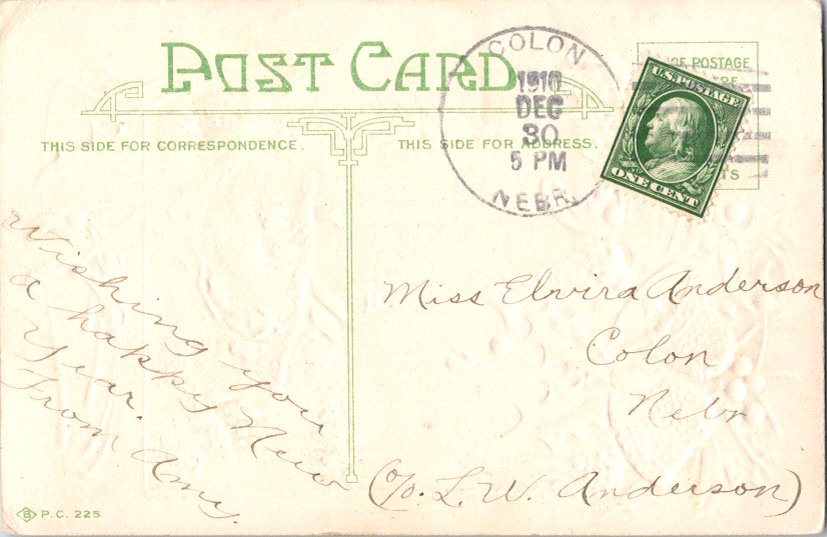 POST CARD
THIS SIDE FOR CORRESPONDENCE.
THIS SIDE FOR ADDRESS.
COLON
1910
DEC
30
5 PM
NEBR.
POSTAGE
U.S. POSTAGE
ONE CENT
Wishing you
a happy New
Year.
From Amy.
Miss Elvira Anderson
Colon
Nebr
(c/o. L. W. Anderson)
B P.C. 225